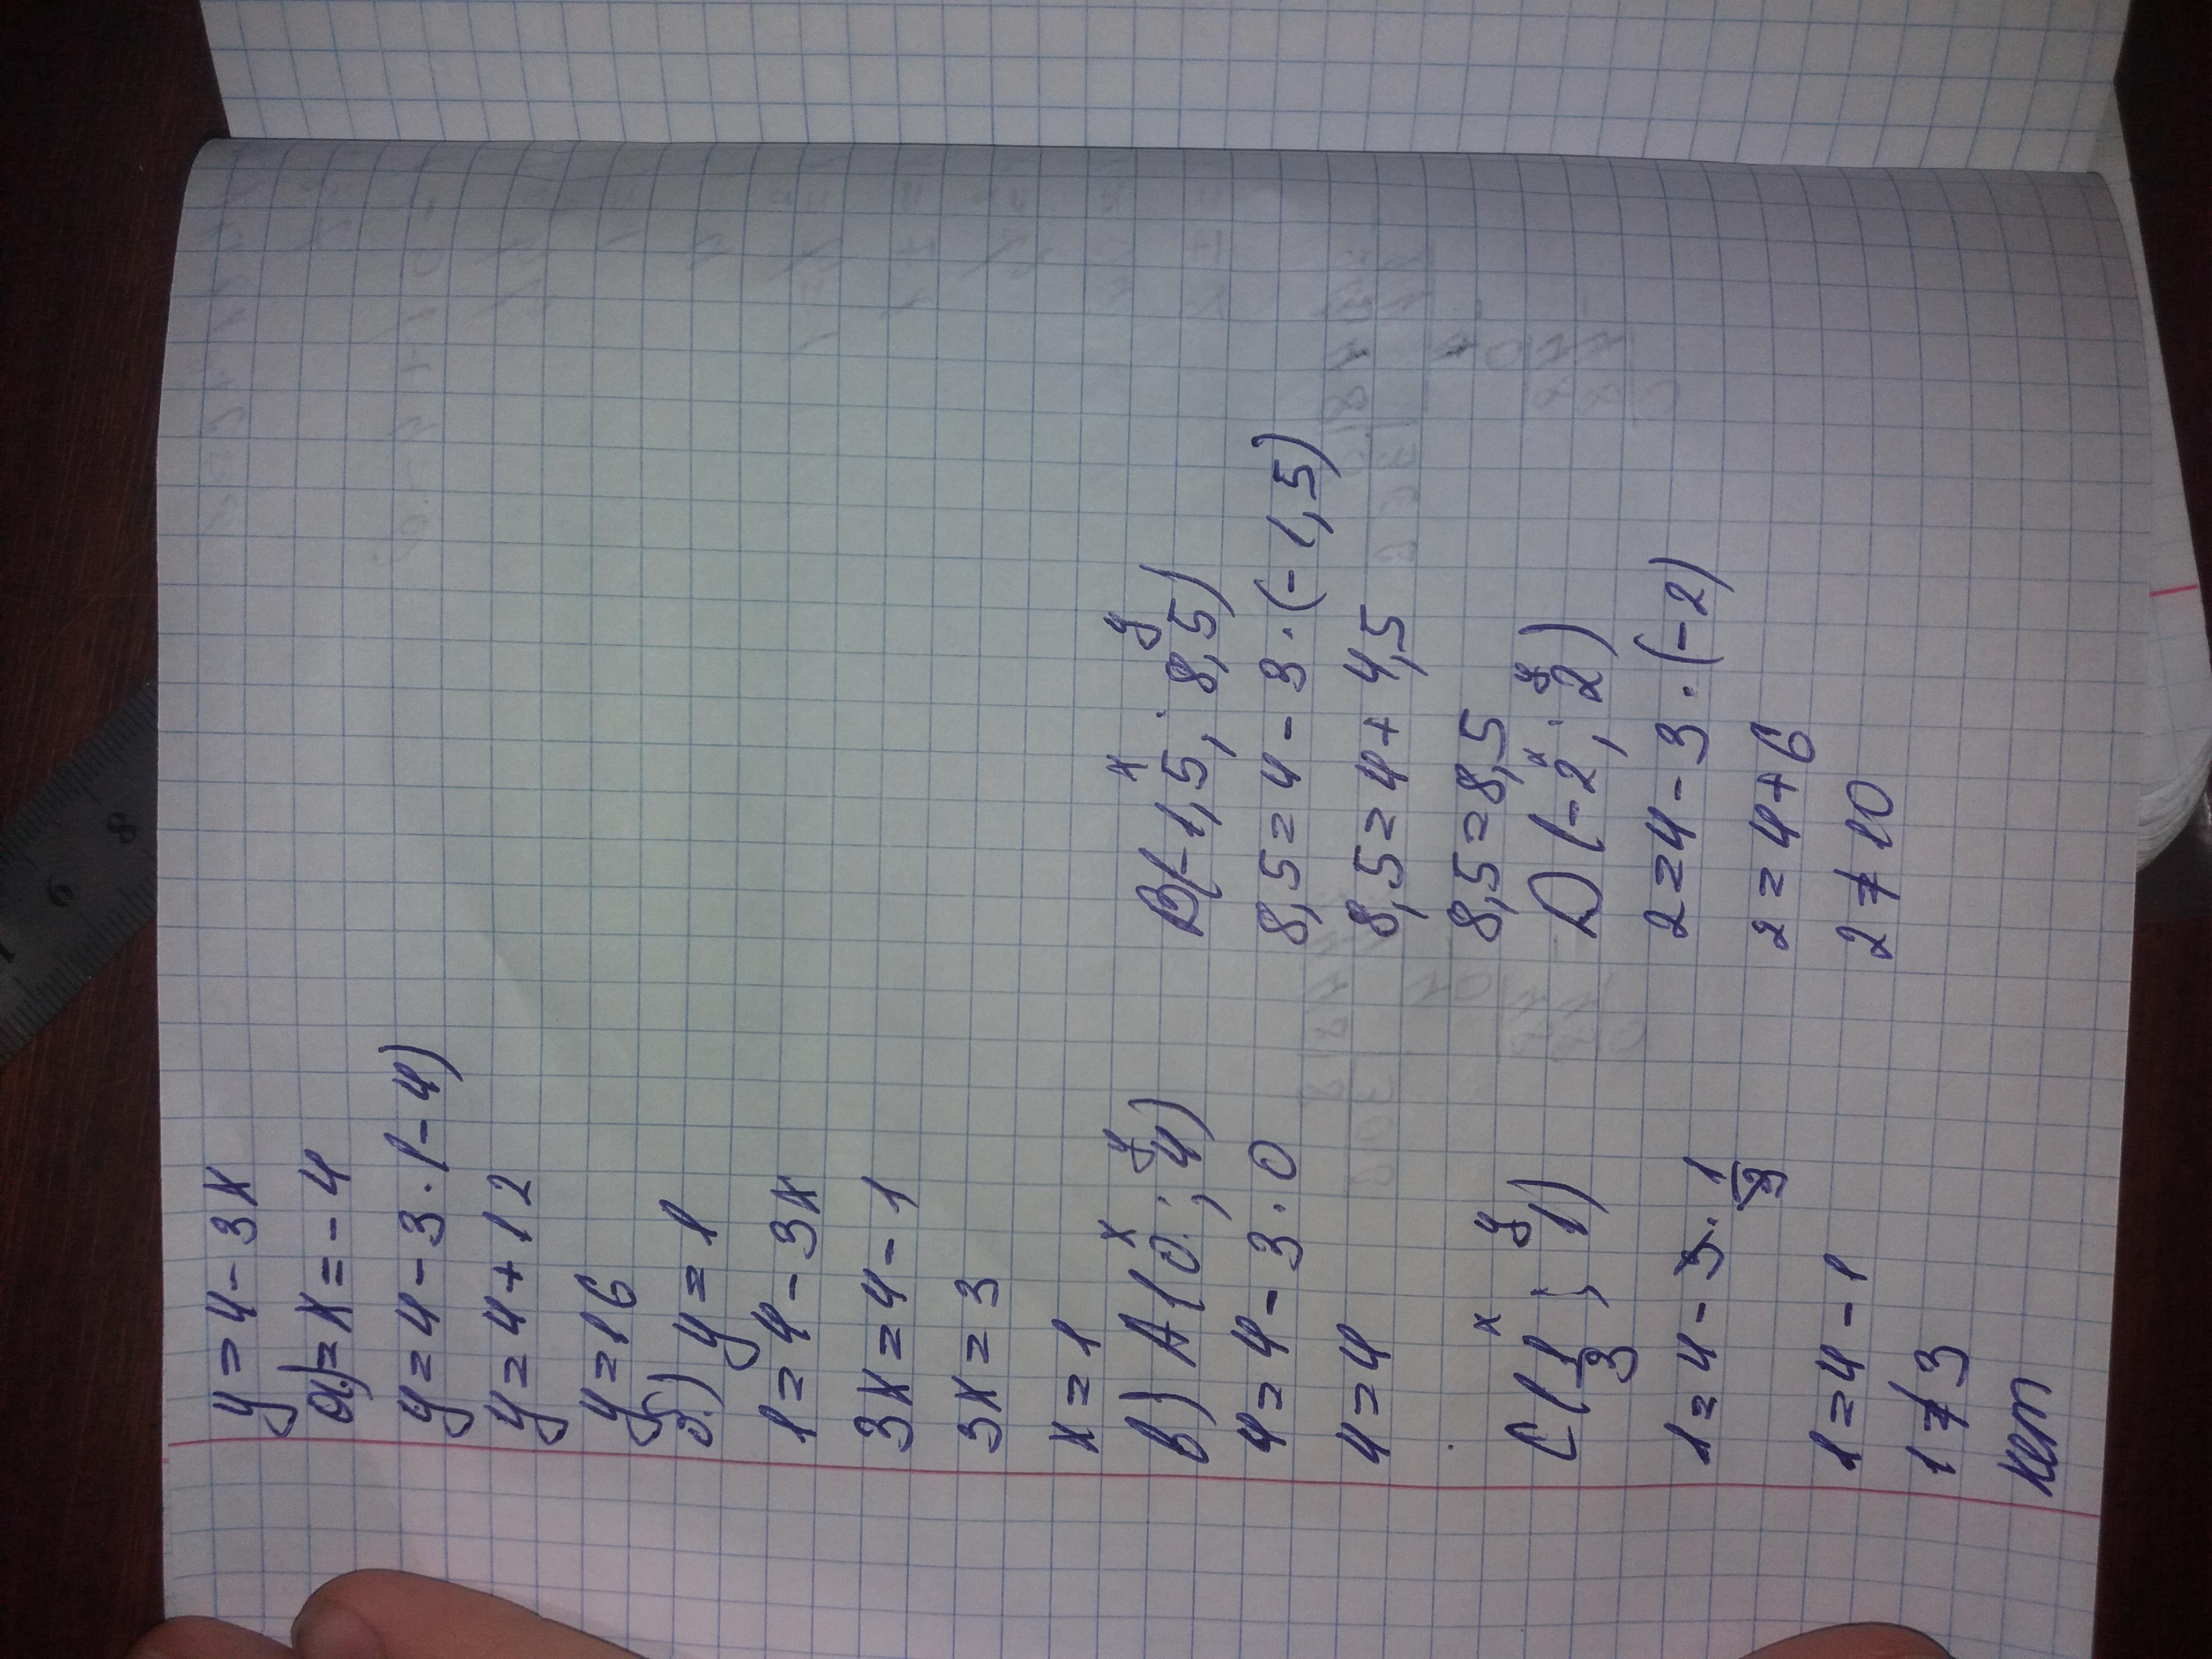 y = 4 - 3x
a) = x = - 4
y = 4 - 3 · (-4)
y = 4 + 12
y = 16
б) y = 1
1 = 4 - 3x
3x = 4 - 1
3x = 3
x = 1
x y
в) A (0 ; 4)
4 = 4 - 3 · 0
4 = 4
x y
B(-1,5 ; 8,5)
8,5 = 4 - 3 · (-1,5)
8,5 = 4 + 4,5
8,5 = 8,5
x y
C (1/3 ; 1)
1 = 4 - 3 · 1/3
1 = 4 - 1
1 ≠ 3
нет
x y
D (-2 ; 2)
2 = 4 - 3 · (-2)
2 = 4 + 6
2 ≠ 10
8
9